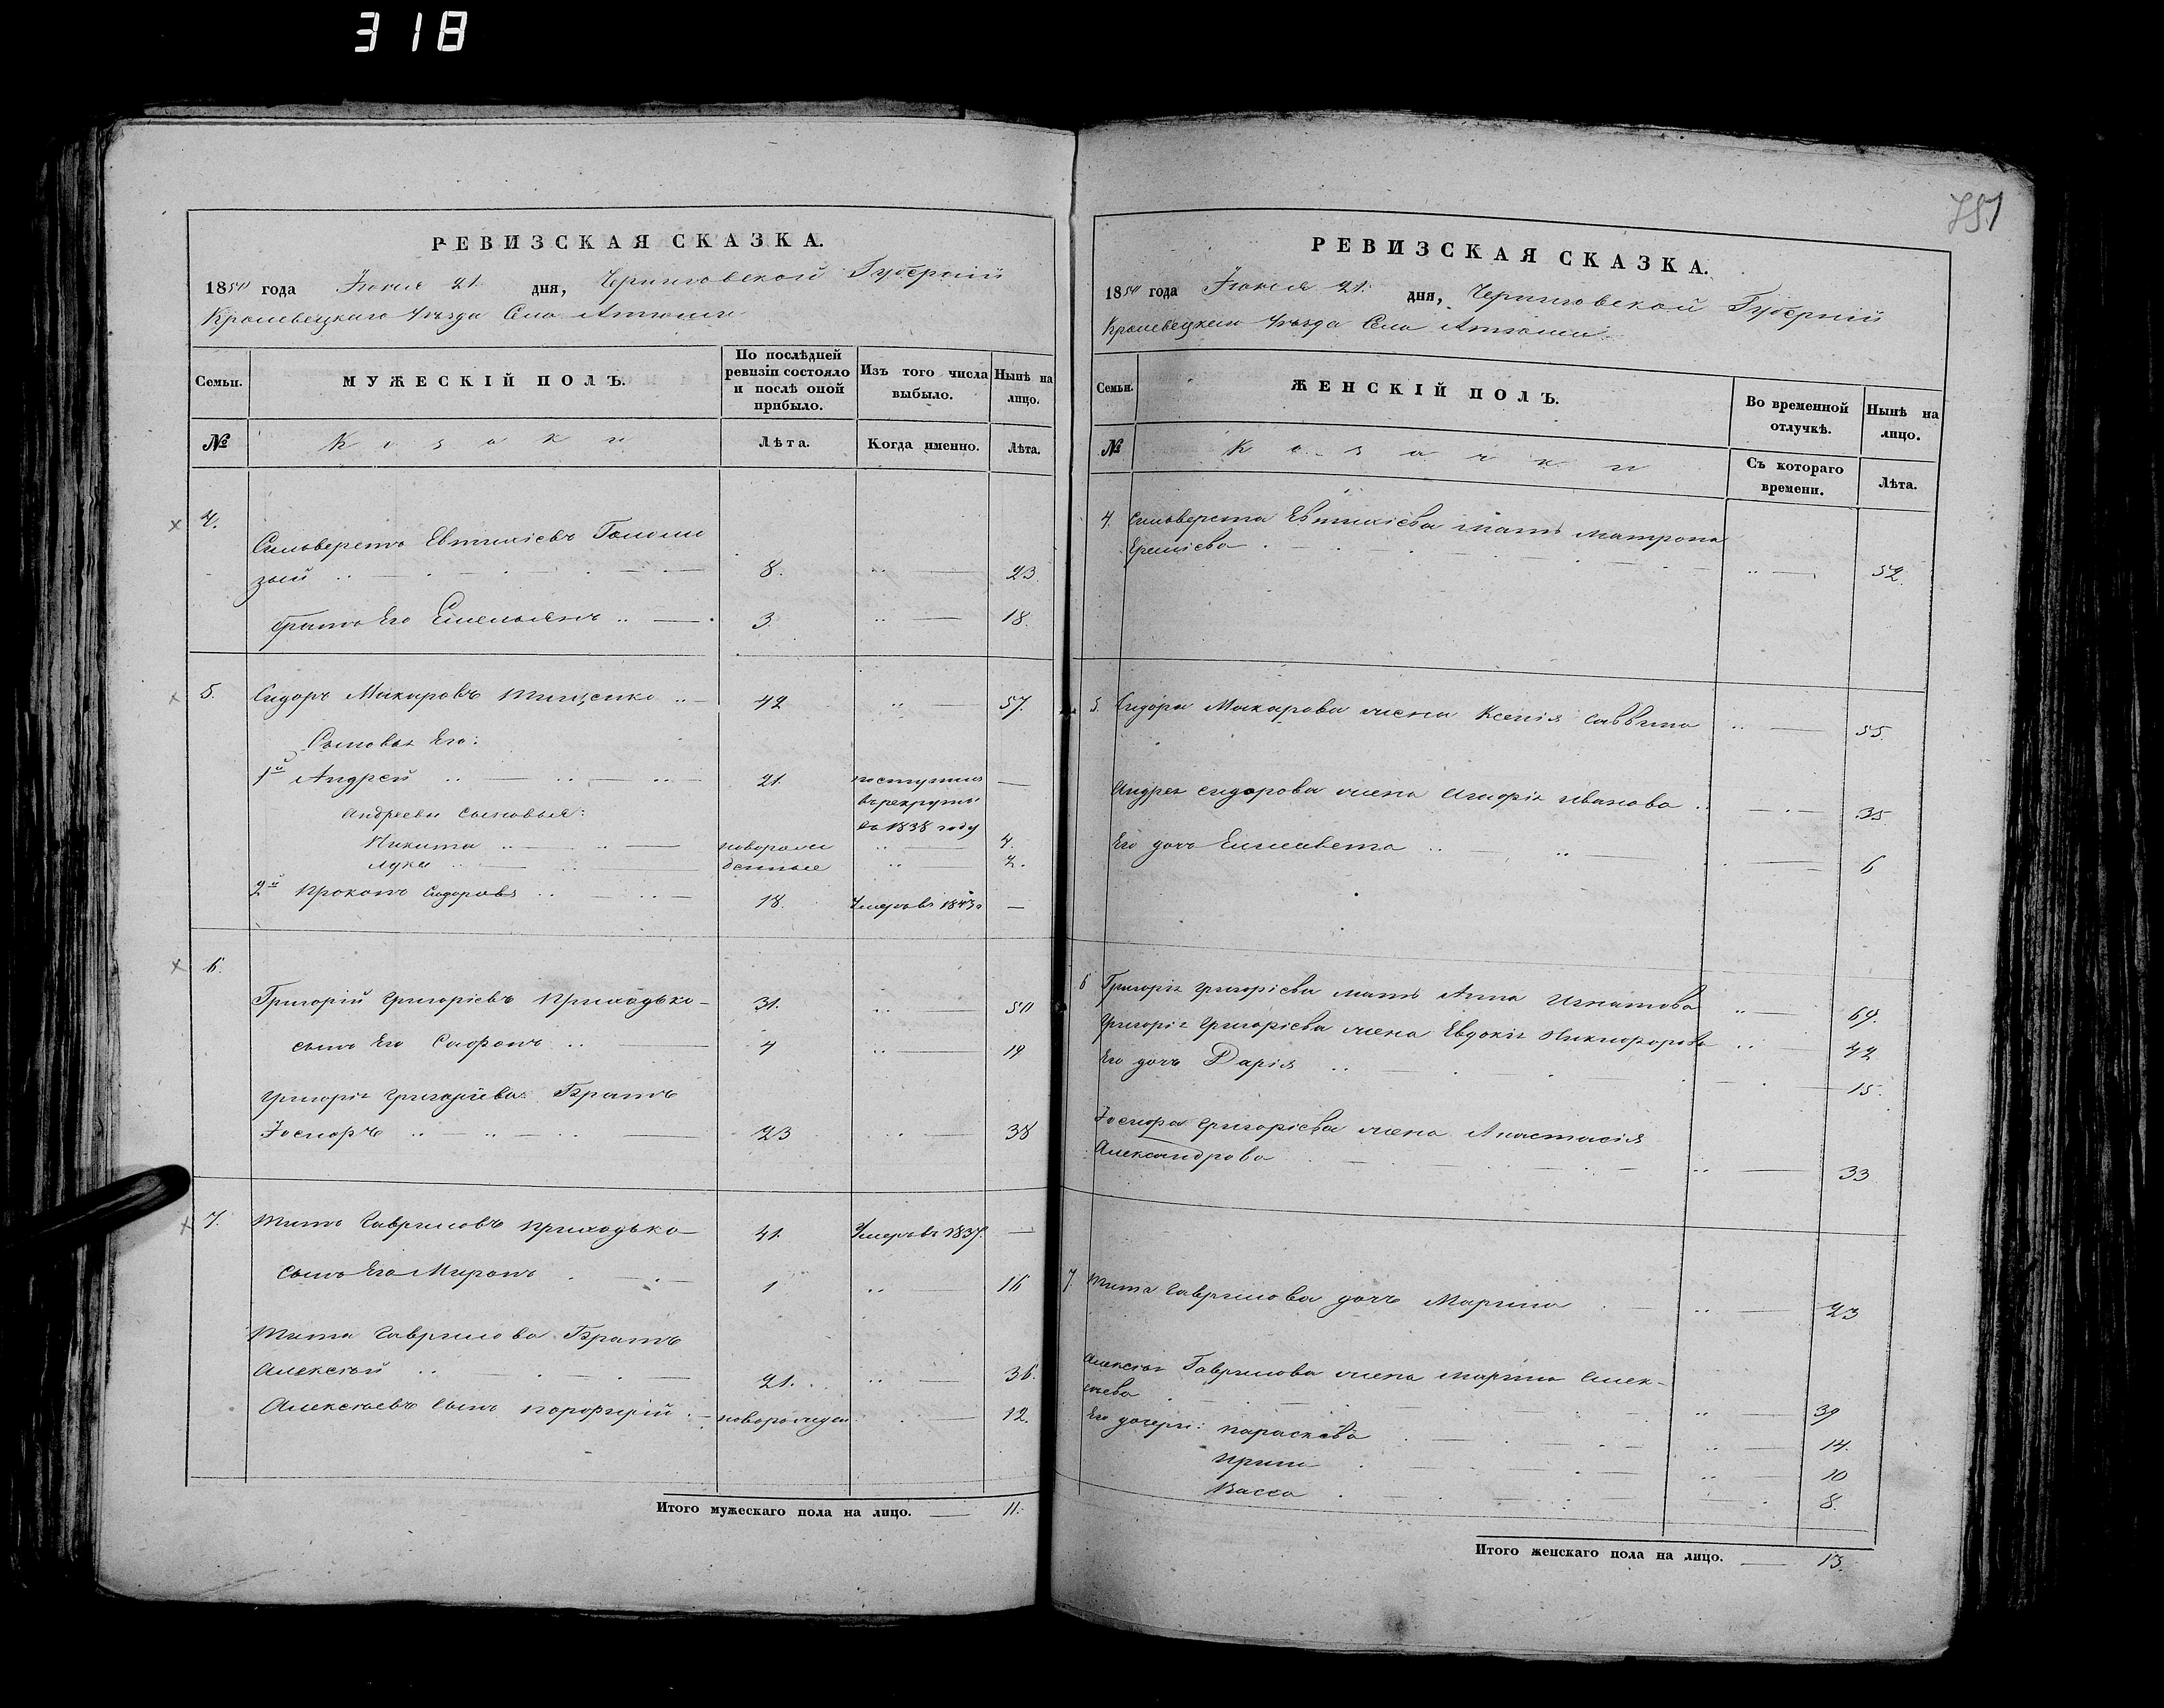 318
751
РЕВИЗСКАЯ СКАЗКА.
1850 года Июня 21. дня, Черниговской Губерніи
Кролевецкаго Уѣзда Села
Семьи.
МУЖЕСКІЙ ПОЛЪ.
По послѣдней ревизіи состояло и послѣ оной прибыло.
Изъ того числа выбыло.
Нынѣ на лицо.
№
Козаки
Лѣта.
Когда именно.
Лѣта.
4. Сильверстъ Евтихіевъ
зый 8. 23.
братъ Его Емельянъ 3. 18.
5. Сидоръ Макаровъ Тищенко 42 57.
Сыновья Его:
1й Андрей 21. поступилъ
въ рекруты
въ 1838 году
Андреевы Сыновья:
Никита новорож 4.
Лука денные 2.
2й Прокопъ Сидоровъ 18. Умеръ въ 1843 —
6. Григорій Григоріевъ Приходько 31. 50
сынъ Его Софонъ 4 19
Григорія Григоріева Братъ
Іосифъ 23 38
7. Титъ Гавриловъ Приходько 41. Умеръ въ 1837. —
Сынъ Его Миронъ 1 16
Тита Гаврилова Братъ
Алексѣй 21. 36.
Алексѣевъ Сынъ Порфирій новорожден 12.
Итого мужескаго пола на лицо. 11.
РЕВИЗСКАЯ СКАЗКА.
1850 года Июня 21. дня, Черниговской Губерніи
Кролевецкаго Уѣзда Села
Семьи.
ЖЕНСКІЙ ПОЛЪ.
Во временной отлучкѣ.
Нынѣ на лицо.
№
Козачки
Съ котораго времени.
Лѣта.
4. Сильверста Евтихіева мать Матрона
52.
5. Сидора Макарова жена Ксенія Саввина 55.
Андрея Сидорова жена Иванова 35.
Его дочь Елисавета 6
6 Григорія Григоріева мать Анна Игнатова 69.
Григорія Григоріева жена Евдокія Никифорова 42
Его дочь Дарія 15.
Іосифа Григоріева жена Анастасія
Александрова 33
7. Тита Гаврилова дочь Марина 23
Алексѣя Гаврилова жена Марина Алек-
сѣева 39
Его дочери: Параскева 14.
Ирина 10
Васса 8.
Итого женскаго пола на лицо. 13.